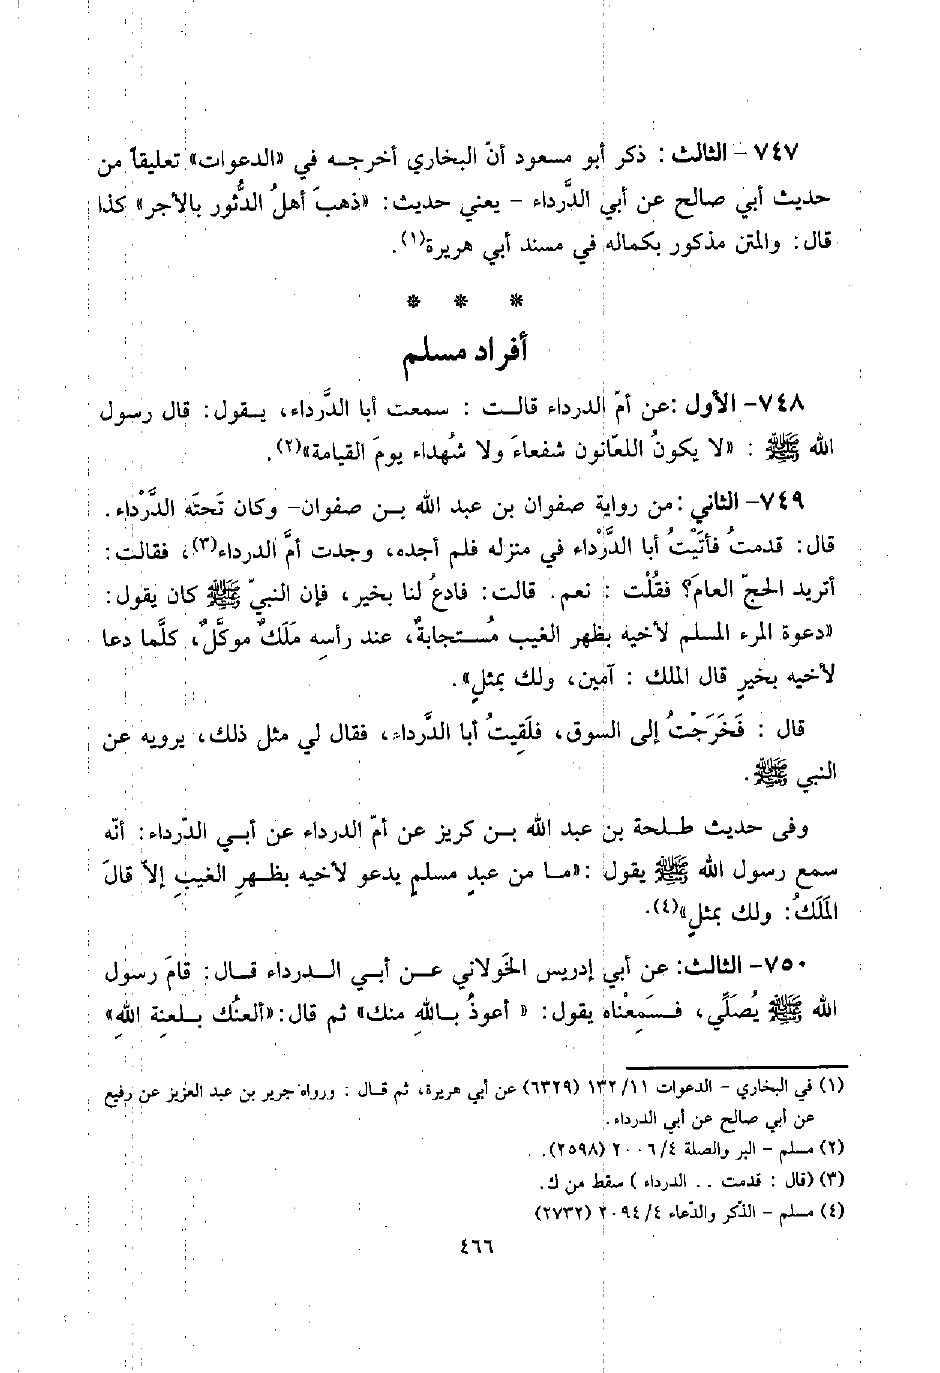 ٧٤٧ - الثالث : ذكر أبو مسعود أنّ البخاري أخرجه في «الدعوات» تعليقاً من
حديث أبي صالح عن أبي الدَّرداء - يعني حديث: «ذهبَ أهلُ الدُّثور بالأجر» كذا
قال: والمتن مذكور بكماله في مسند أبي هريرة(١).
* * *
أفراد مسلم
٧٤٨- الأول :عن أمّ الدرداء قالت : سمعت أبا الدَّرداء، يقول: قال رسول
الله ﷺ : «لا يكونُ اللعّانون شفعاءَ ولا شُهداء يومَ القيامة»(٢).
٧٤٩- الثاني :من رواية صفوان بن عبد الله بن صفوان- وكان تَحتَه الدَّرْداء.
قال: قدمتُ فأتَيْتُ أبا الدَّرْداء في منزله فلم أجده، وجدت أمَّ الدرداء(٣)، فقالت:
أتريد الحجّ العام؟ فقُلْت : نعم. قالت: فادعُ لنا بخير، فإن النبيّ ﷺ كان يقول:
«دعوة المرء المسلم لأخيه بظهر الغيب مُستجابةٌ، عند رأسِه مَلَكٌ موكَّلٌ، كلَّما دعا
لأخيه بخيرٍ قال الملك : آمين، ولك بمثلٍ».
قال : فَخَرَجْتُ إلى السوق، فلَقِيتُ أبا الدَّرداء، فقال لي مثل ذلك، يرويه عن
النبي ﷺ.
وفى حديث طلحة بن عبد الله بن كريز عن أمّ الدرداء عن أبي الدّرداء: أنّه
سمع رسول الله ﷺ يقول :«ما من عبدٍ مسلمٍ يدعو لأخيه بظهرِ الغيبِ إلاّ قالَ
المَلَكُ: ولك بمثلٍ»(٤).
٧٥٠- الثالث: عن أبي إدريس الخَولاني عن أبي الدرداء قال: قامَ رسول
الله ﷺ يُصَلِّي، فسَمَعْناه يقول: « أعوذُ باللهِ منك» ثم قال:«ألعنُك بلعنة اللهِ»
(١) في البخاري - الدعوات ١٣٢/١١ (٦٣٢٩) عن أبي هريرة، ثم قال : ورواه جرير بن عبد العزيز عن رفيع
عن أبي صالح عن أبي الدرداء.
(٢) مسلم - البر والصلة ٢٠٠٦/٤ (٢٥٩٨).
(٣) (قال : قدمت . . الدرداء ) سقط من ك.
(٤) مسلم - الذّكر والدّعاء ٢٠٩٤/٤ (٢٧٣٢)
٤٦٦